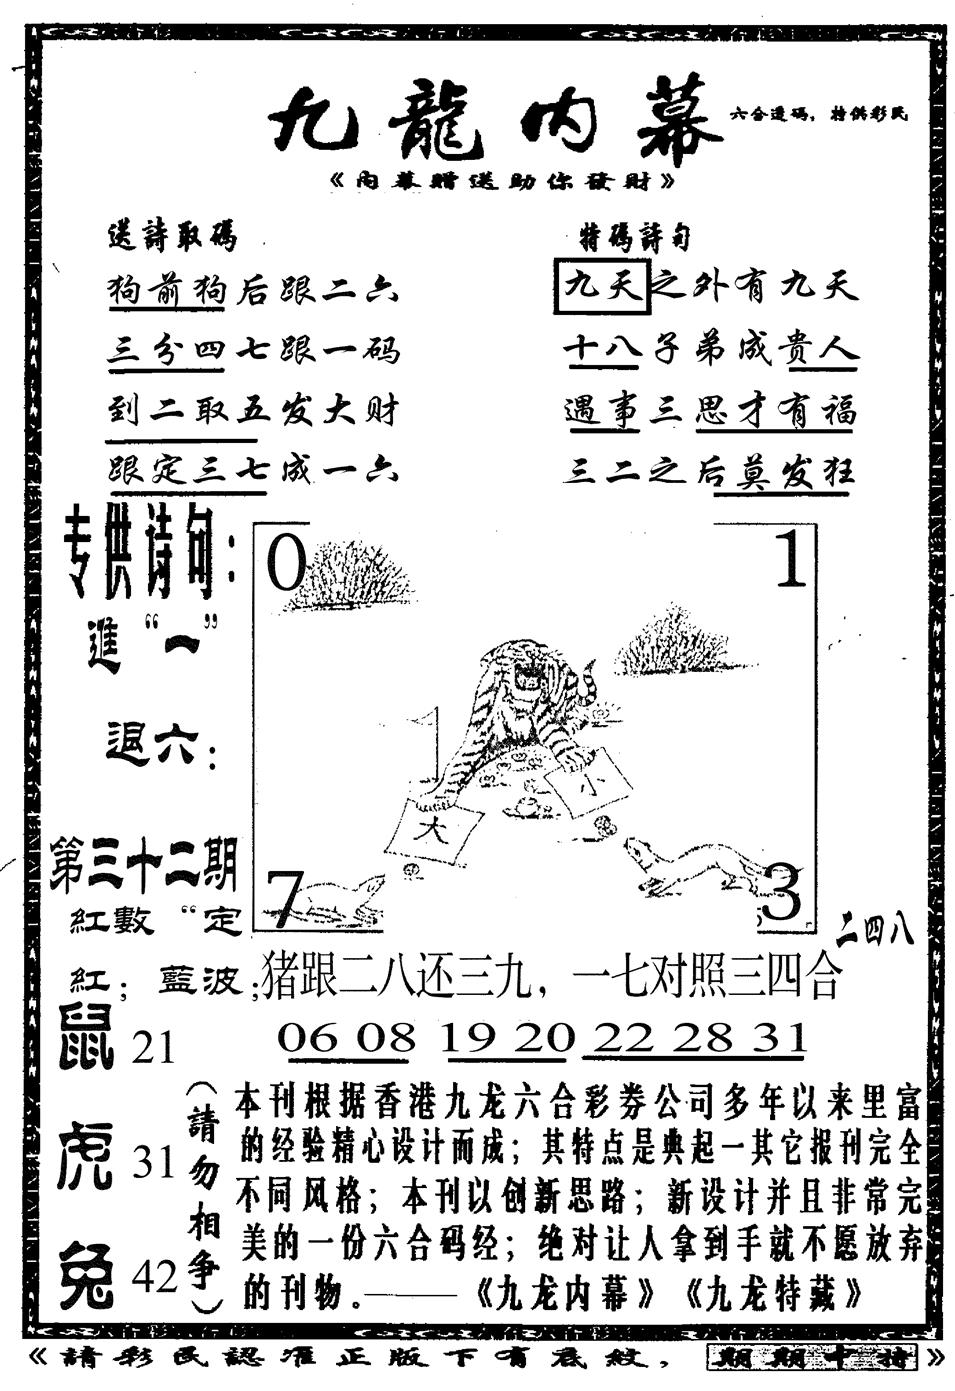 九龍内幕
六合透碼，特供彩民
《内幕贈送助你發財》
送詩取碼
狗前狗后跟二六
三分四七跟一码
到二取五发大财
跟定三七成一六
特碼詩句
九天之外有九天
十八子弟成贵人
遇事三思才有福
三二之后莫发狂
专供诗句：
進“一”
退六：
第三十二期
紅數“定
紅；藍波；
0
1
大
小
7
3
二四八
猪跟二八还三九，一七对照三四合
06 08 19 20 22 28 31
鼠 21
虎 31
兔 42
（請勿相争）
本刊根据香港九龙六合彩券公司多年以来里富
的经验精心设计而成；其特点是典起一其它报刊完全
不同风格；本刊以创新思路；新设计并且非常完
美的一份六合码经；绝对让人拿到手就不愿放弃
的刊物。———《九龙内幕》《九龙特藏》
《請彩民認准正版下有底紋，期期中特》